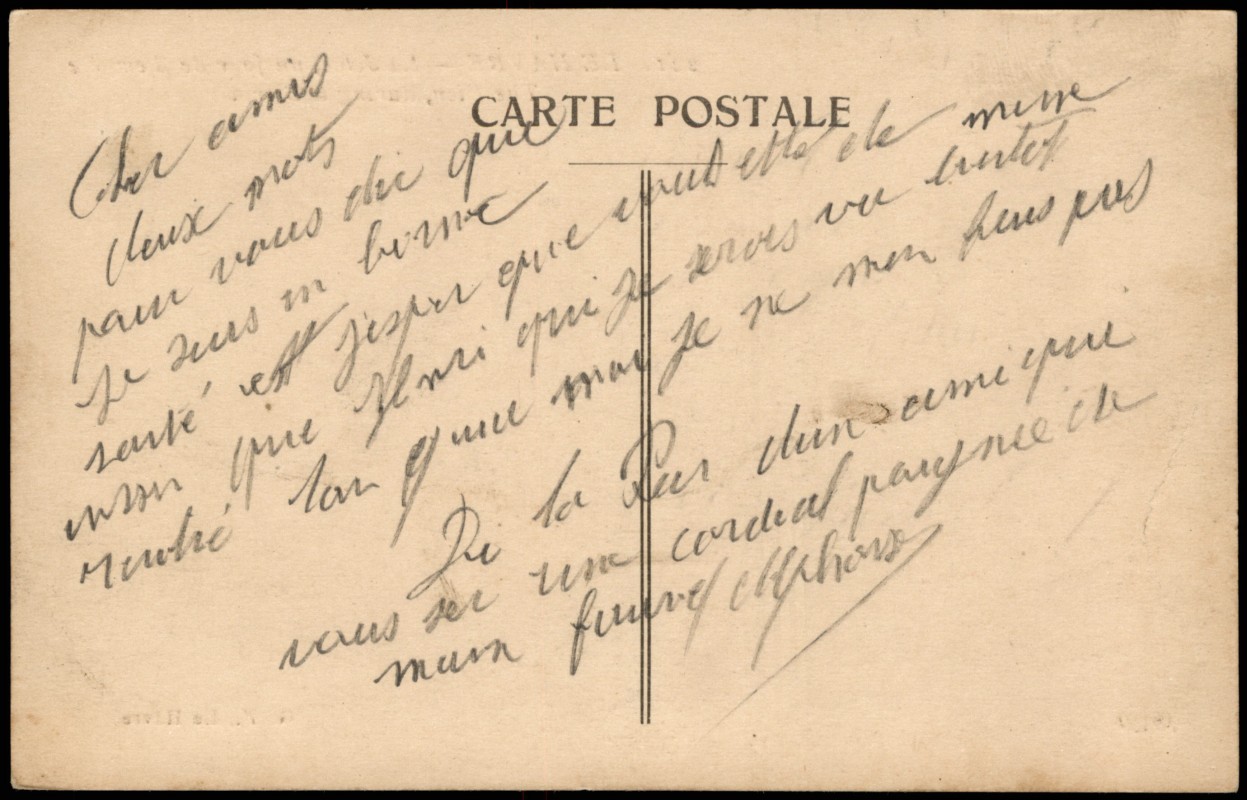 CARTE POSTALE
Cher amis
deux mots
pour vous dir que
je suis en bonne
santé est jesper que vous ette de meme
insin que Henri qui je serois vu bintot
rentré tan qua moi je ne men fieus pas
De la Par dun ami qui
vous ser une cordial poingnee de
main Alphonse